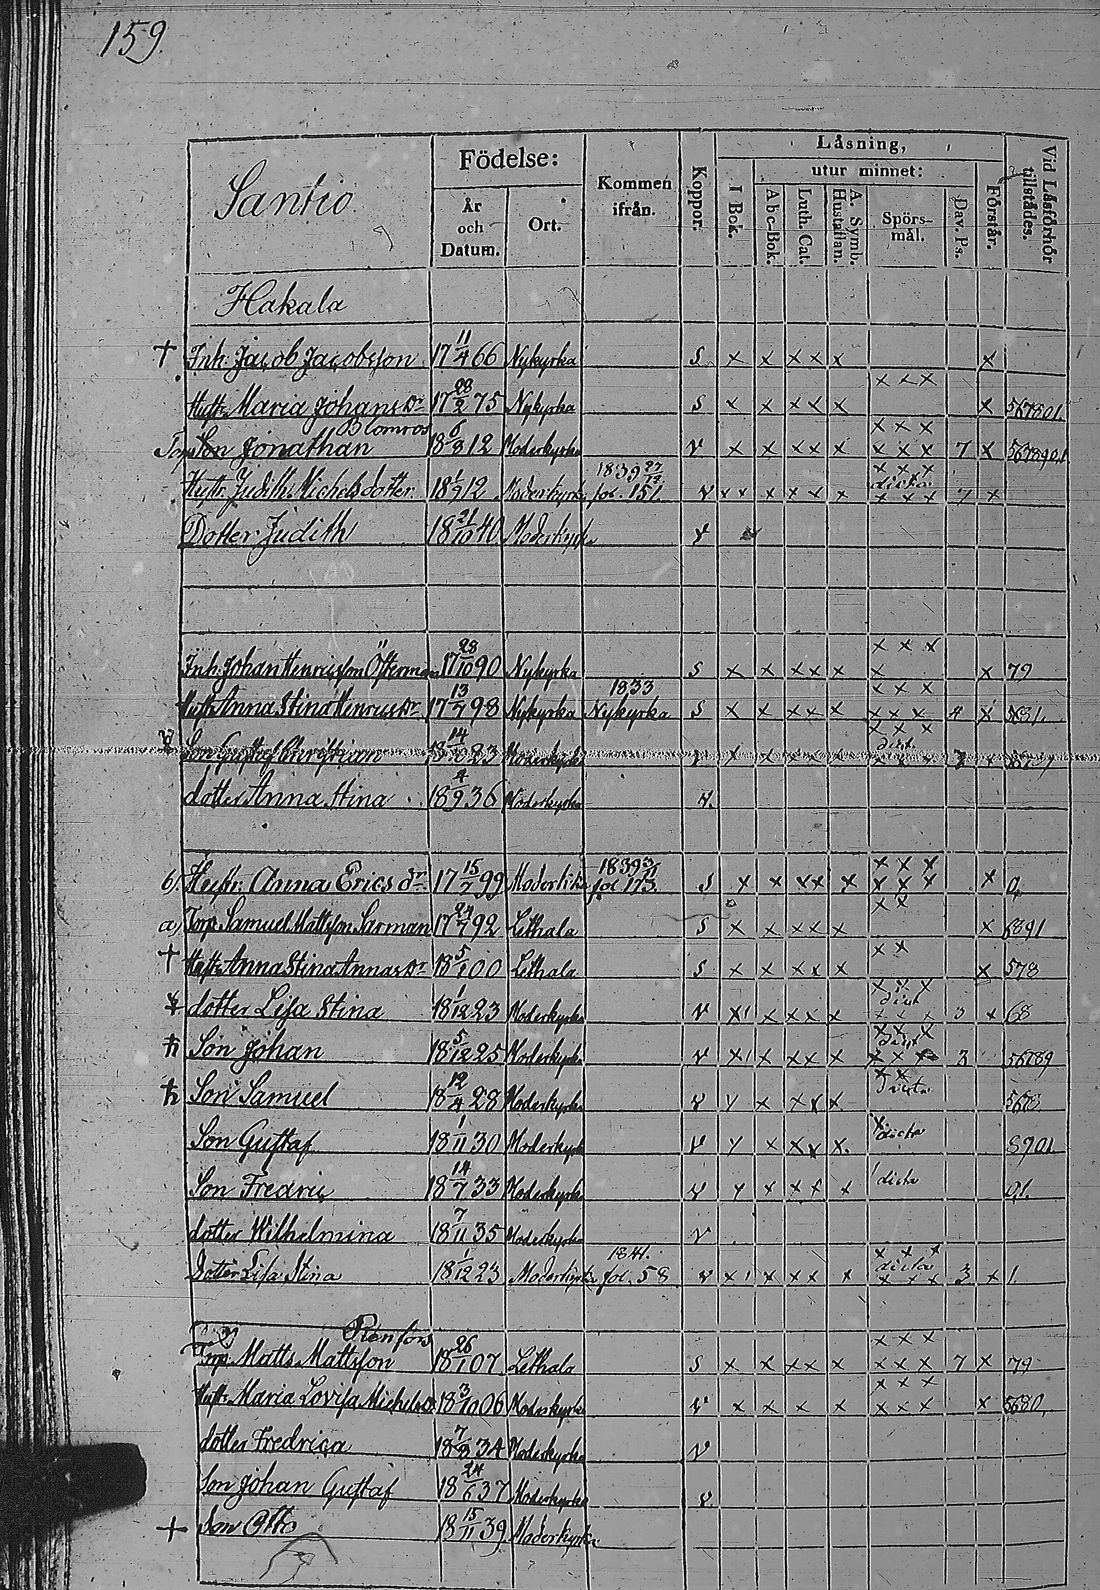 159.
Santio.
Födelse:
År och Datum.
Ort.
Kommen ifrån.
Koppor.
Låsning,
I Bok.
utur minnet:
Abc-Bok.
Luth. Cat.
A. Symb. Hustaflan.
Spörs-mål.
Dav. Ps.
Förstår.
Vid Låsförhör tillstådes.
Hakala
† Inh. Jacob Jacobsson 17 11/4 66 Nykyrka S x x x x x x
x x x
Hustr. Maria Johansdr 17 28/2 75 Nykyrka S x x x x x x 567801.
Blomros x x x
Son Jonathan 18 6/3 12 Moderkyrka v x x x x x x x x 7 x
1839 27/12 x x x
Hustr. Judith Michelsdotter 18 1/9 12 Moderkyrka fol. 151. v x x x x x x dicta x x x 7 x
Dotter Judith 18 21/10 40 Moderkyrka v
x x x
Inh. Johan Henricsson Österman 17 28/10 90 Nykyrka S x x x x x x x 79
1833 x x x
Hustr. Anna Stina Henricsdr 17 13/7 98 Nykyrka Nykyrka S x x x x x x x x 4 x
x x x
Son Gustaf Christian 18 14/10 23 Moderkyrka v x x x x x dict x x x
dotter Anna Stina 18 4/9 36 Moderkyrka v.
1839 3/11 x x x
b). Hustr. Anna Ericsdr 17 15/7 99 fol 173. S x x x x x x x x x
x x
a) Torp. Samuel Mattsson Sarman 17 24/7 92 Lethala S x x x x x x 6891
x x
† Hustr. Anna Stina Annasdr 18 5/1 00 Lethala S x x x x x x 578
x x x
dotter Lisa Stina 18 1/12 23 Moderkyrka v x x x x x dict x x x 3 x 68
x x x
Son Johan 18 5/12 25 Moderkyrka v x x x x x dict x x x 3 56789
x x
Son Samuel 18 12/4 28 Moderkyrka v x x x x x dicta 5678
Son Gustaf 18 1/11 30 Moderkyrka v x x x x x. dicta
Son Fredric 18 14/7 33 Moderkyrka v x x x x x dicta 91.
dotter Wilhelmina 18 7/11 35 Moderkyrka v
1841. x x x
Dotter Lisa Stina 18 1/12 23 Moderkyrka fol. 58 v x x x x x dicta x x x 3 x 1.
Renfors x x x
Torp. Matts Mattsson 18 26/1 07 Lethala S x x x x x x x x 7 x 79
x x x
Hustr. Maria Lovisa Michelsdr 18 3/10 06 Moderkyrka v x x x x x x x x x 5680.
dotter Fredrica 18 7/3 34 Moderkyrka v
Son Johan Gustaf 18 24/6 37 Moderkyrka v
† Son Otto 18 15/11 39 Moderkyrka